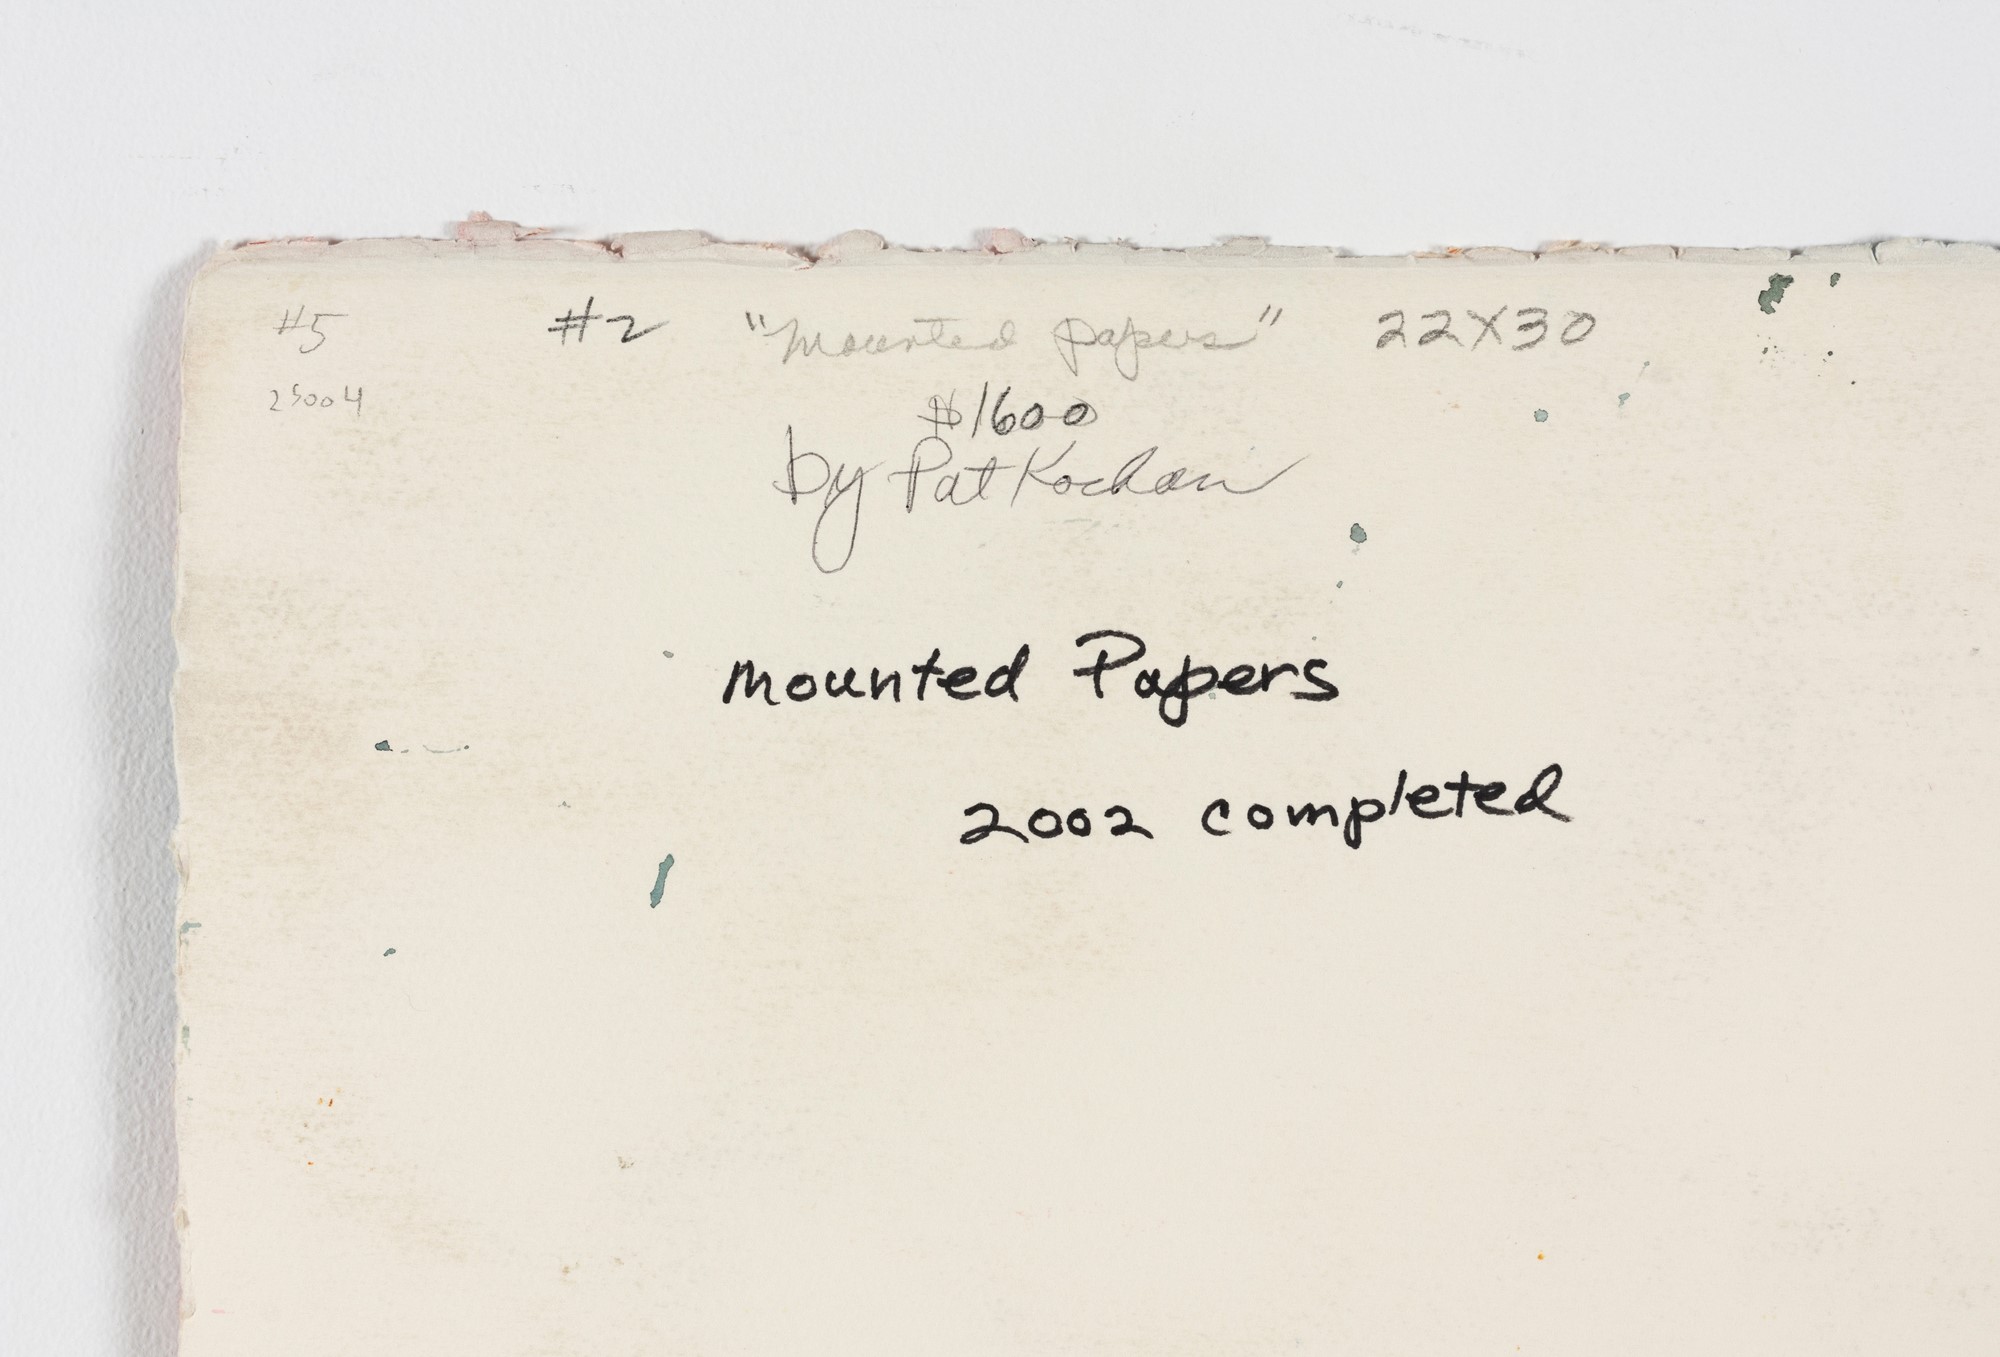 #5 #2 "Mounted papers" 22X30
25004
$1600
by Pat Kochan
Mounted Papers
2002 completed